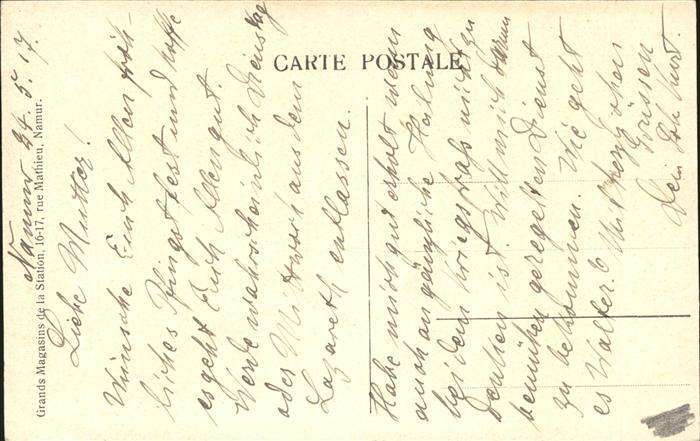 CARTE POSTALE
Grands Magasins de la Station, 16-17, rue Mathieu, Namur.
Namur 24. 5. 17.
Liebe Mutter!
Wünsche Euch Allen fröh-
liches Pfingstfest und hoffe
es geht Euch Allen gut.
Werde wahrscheinlich Dienstag
oder Mittwoch aus dem
Lazareth entlassen.
Habe mich gut erholt wenn
auch an gänzliche Heilung
bei dem Kriegs nicht zu
denken ist. Will mich darum
bemühen geregelten Dienst
zu bekommen. Wie geht
es Walter? Mit herzlichen
Grüssen
Dein